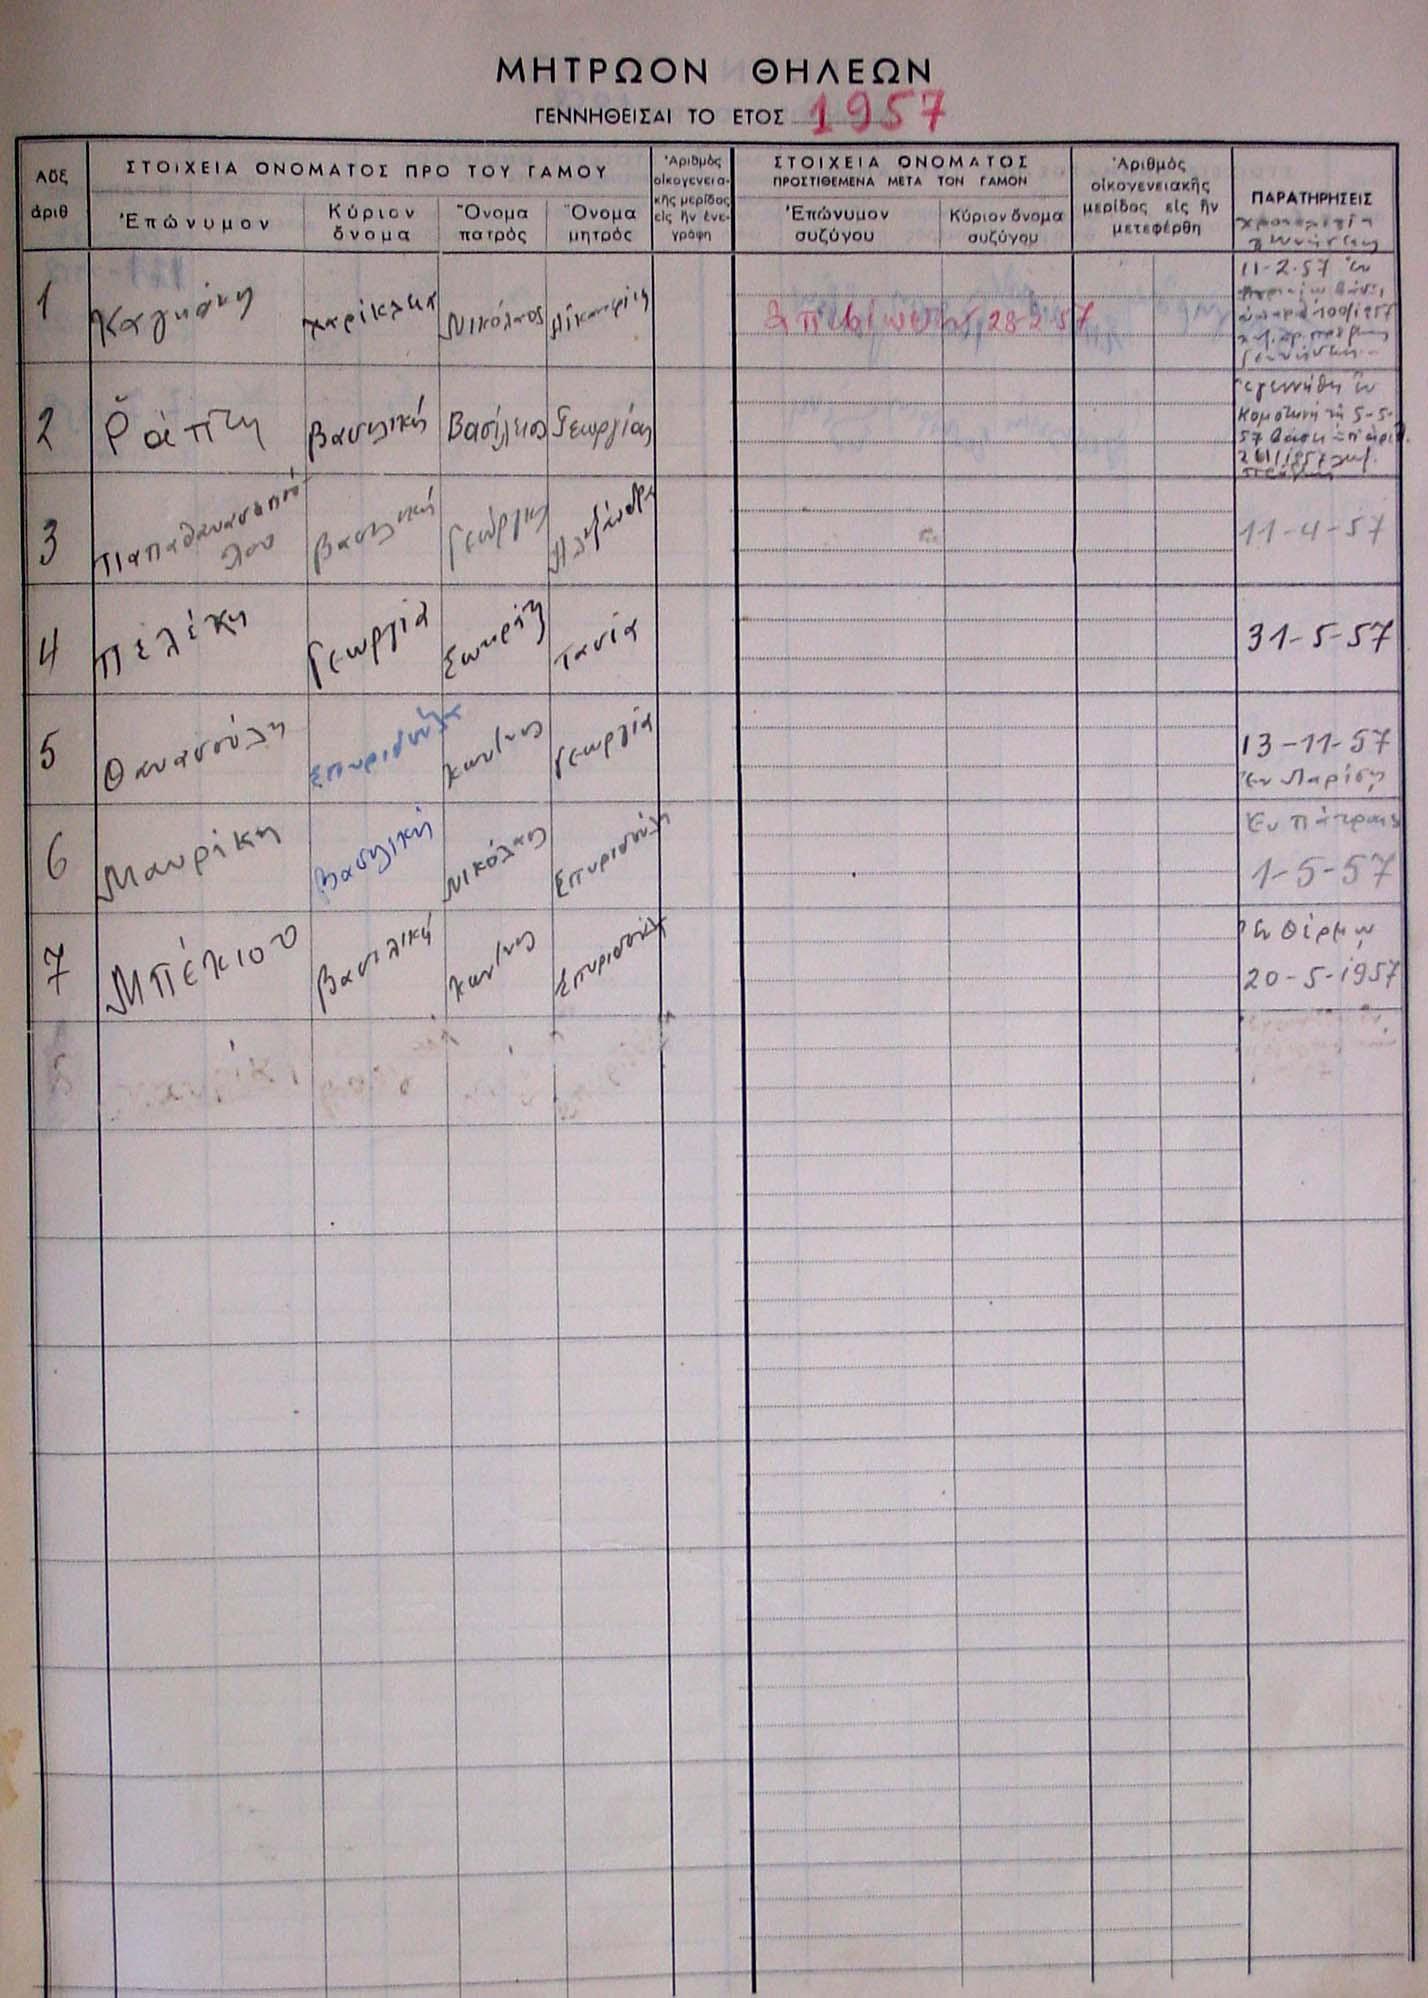 ΜΗΤΡΩΟΝ ΘΗΛΕΩΝ
ΓΕΝΝΗΘΕΙΣΑΙ ΤΟ ΕΤΟΣ 1957
Αὔξ
ἀριθ
ΣΤΟΙΧΕΙΑ ΟΝΟΜΑΤΟΣ ΠΡΟ ΤΟΥ ΓΑΜΟΥ
Ἐπώνυμον
Κύριον
ὄνομα
Ὄνομα
πατρὸς
Ὄνομα
μητρὸς
Ἀριθμὸς
οἰκογενεια-
κῆς μερίδος
εἰς ἣν ἐνε-
γράφη
ΣΤΟΙΧΕΙΑ ΟΝΟΜΑΤΟΣ
ΠΡΟΣΤΙΘΕΜΕΝΑ ΜΕΤΑ ΤΟΝ ΓΑΜΟΝ
Ἐπώνυμον
συζύγου
Κύριον ὄνομα
συζύγου
Ἀριθμὸς
οἰκογενειακῆς
μερίδος εἰς ἣν
μετεφέρθη
ΠΑΡΑΤΗΡΗΣΕΙΣ
1 Χαρίκλεια Νικόλαος 28-2-57
11-2-57
100/1957
2 Ράπτη Βασιλική Βασίλειος Γεωργίας
Γεγεννήθη
Κομοτινή τῇ 5-5-
57
3 Παπαθανασοπού
λου Βασιλική Γεώργιος 11-4-57
4 Πελέκη Γεωργία Σωκράτης Τασία 31-5-57
5 Θανασούλη Σπυριδούλα Κων/νος Γεωργία 13-11-57
Ἐν Λαρίσῃ
6 Μαυρίκη Βασιλική Νικόλαος Σπυριδούλα Ἐν Πάτραις
1-5-57
7 Μπέκιου Βασιλική Κων/νος Σπυριδούλα Ἐν Θέρμῳ
20-5-1957